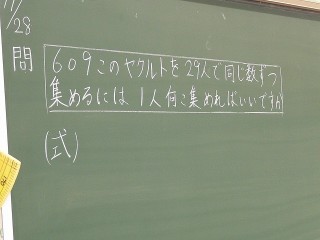 11/28
問
609このヤクルトを29人で同じ数ずつ
集めるには1人何こ集めればいいですか
(式)